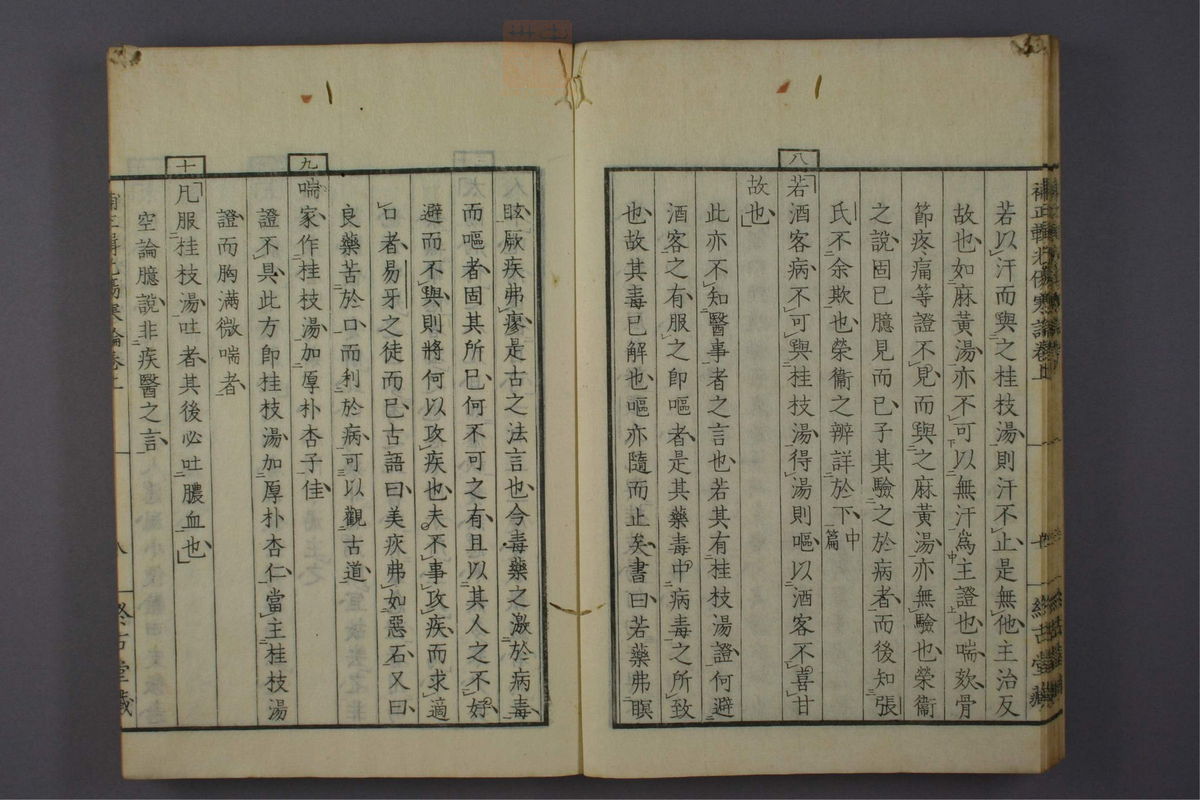 若以汗而與之桂枝湯則汗不止是無他主治反
故也如麻黃湯亦不可以無汗爲主證也喘欬骨
節疼痛等證不見而與之麻黃湯亦無驗也榮衞
之說固已臆見而已子其驗之於病者而後知張
氏不余欺也榮衞之辨詳於下中篇
八
若酒客病不可與桂枝湯得湯則嘔以酒客不喜甘
故也
此亦不知醫事者之言也若其有桂枝湯證何避
酒客之有服之卽嘔者是其藥毒中病毒之所致
也故其毒已解也嘔亦隨而止矣書曰若藥弗瞑
眩厥疾弗瘳是古之法言也今毒藥之激於病毒
而嘔者固其所已何不可之有且以其人之不好
避而不與則將何以攻疾也夫不事攻疾而求適
口者易牙之徒而已古語曰美疢弗如惡石又曰
良藥苦於口而利於病可以觀古道
九
喘家作桂枝湯加厚朴杏子佳
證不具此方卽桂枝湯加厚朴杏仁當主桂枝湯
證而胸滿微喘者
十
凡服桂枝湯吐者其後必吐膿血也
空論臆說非疾醫之言